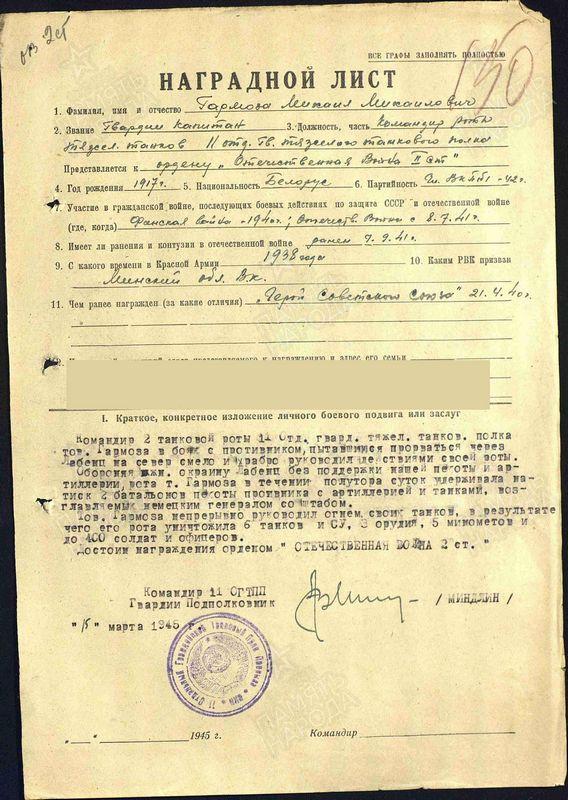 ОВ 2ст
ВСЕ ГРАФЫ ЗАПОЛНЯТЬ ПОЛНОСТЬЮ
НАГРАДНОЙ ЛИСТ
1. Фамилия, имя и отчество Гармоза Михаил Михайлович
2. Звание Гвардии капитан 3. Должность, часть Командир роты
тяжел. танков 11 отд. Гв. тяжелого танкового полка
Представляется к ордену "Отечественная Война II ст"
4. Год рождения 1917г. 5. Национальность Белорус 6. Партийность Чл. ВКПб - 42г.
7. Участие в гражданской войне, последующих боевых действиях по защите СССР и отечественной войне
(где, когда) Финская война - 1940г; Отечеств. Война с 8.7.41г.
8. Имеет ли ранения и контузии в отечественной войне ранен 7.9.41г.
9. С какого времени в Красной Армии 1938 года 10. Каким РВК призван
Минский обл. ВК.
11. Чем ранее награжден (за какие отличия) "Герой Советского Союза" 21.4.40г.
представляемого к награждению и адрес его семьи
I. Краткое, конкретное изложение личного боевого подвига или заслуг
Командир 2 танковой роты 11 Отд. гвард. тяжел. танков. полка
тов. Гармоза в боях с противником, пытавшимся прорваться через
Лабенц на север смело и храбро руководил действиями своей роты.
Обороняя южн. окраину Лабенц без поддержки нашей пехоты и ар-
тиллерии, рота т. Гармоза в течении полутора суток удерживала на-
тиск 2 батальонов пехоты противника с артиллерией и танками, воз-
главляемых немецким генералом со штабом.
Тов. Гармоза непрерывно руководил огнем своих танков, в результате
чего его рота уничтожила 6 танков и СУ, 3 орудия, 5 минометов и
до 400 солдат и офицеров.
Достоин награждения орденом " ОТЕЧЕСТВЕННАЯ ВОЙНА 2 ст. "
Командир 11 ОГТТП
Гвардии Подполковник / МИНДЛИН /
"15" марта 1945 г.
11 Отдельный Гвардейский Танковый Полк Прорыва
"___" ____________ 1945 г. Командир